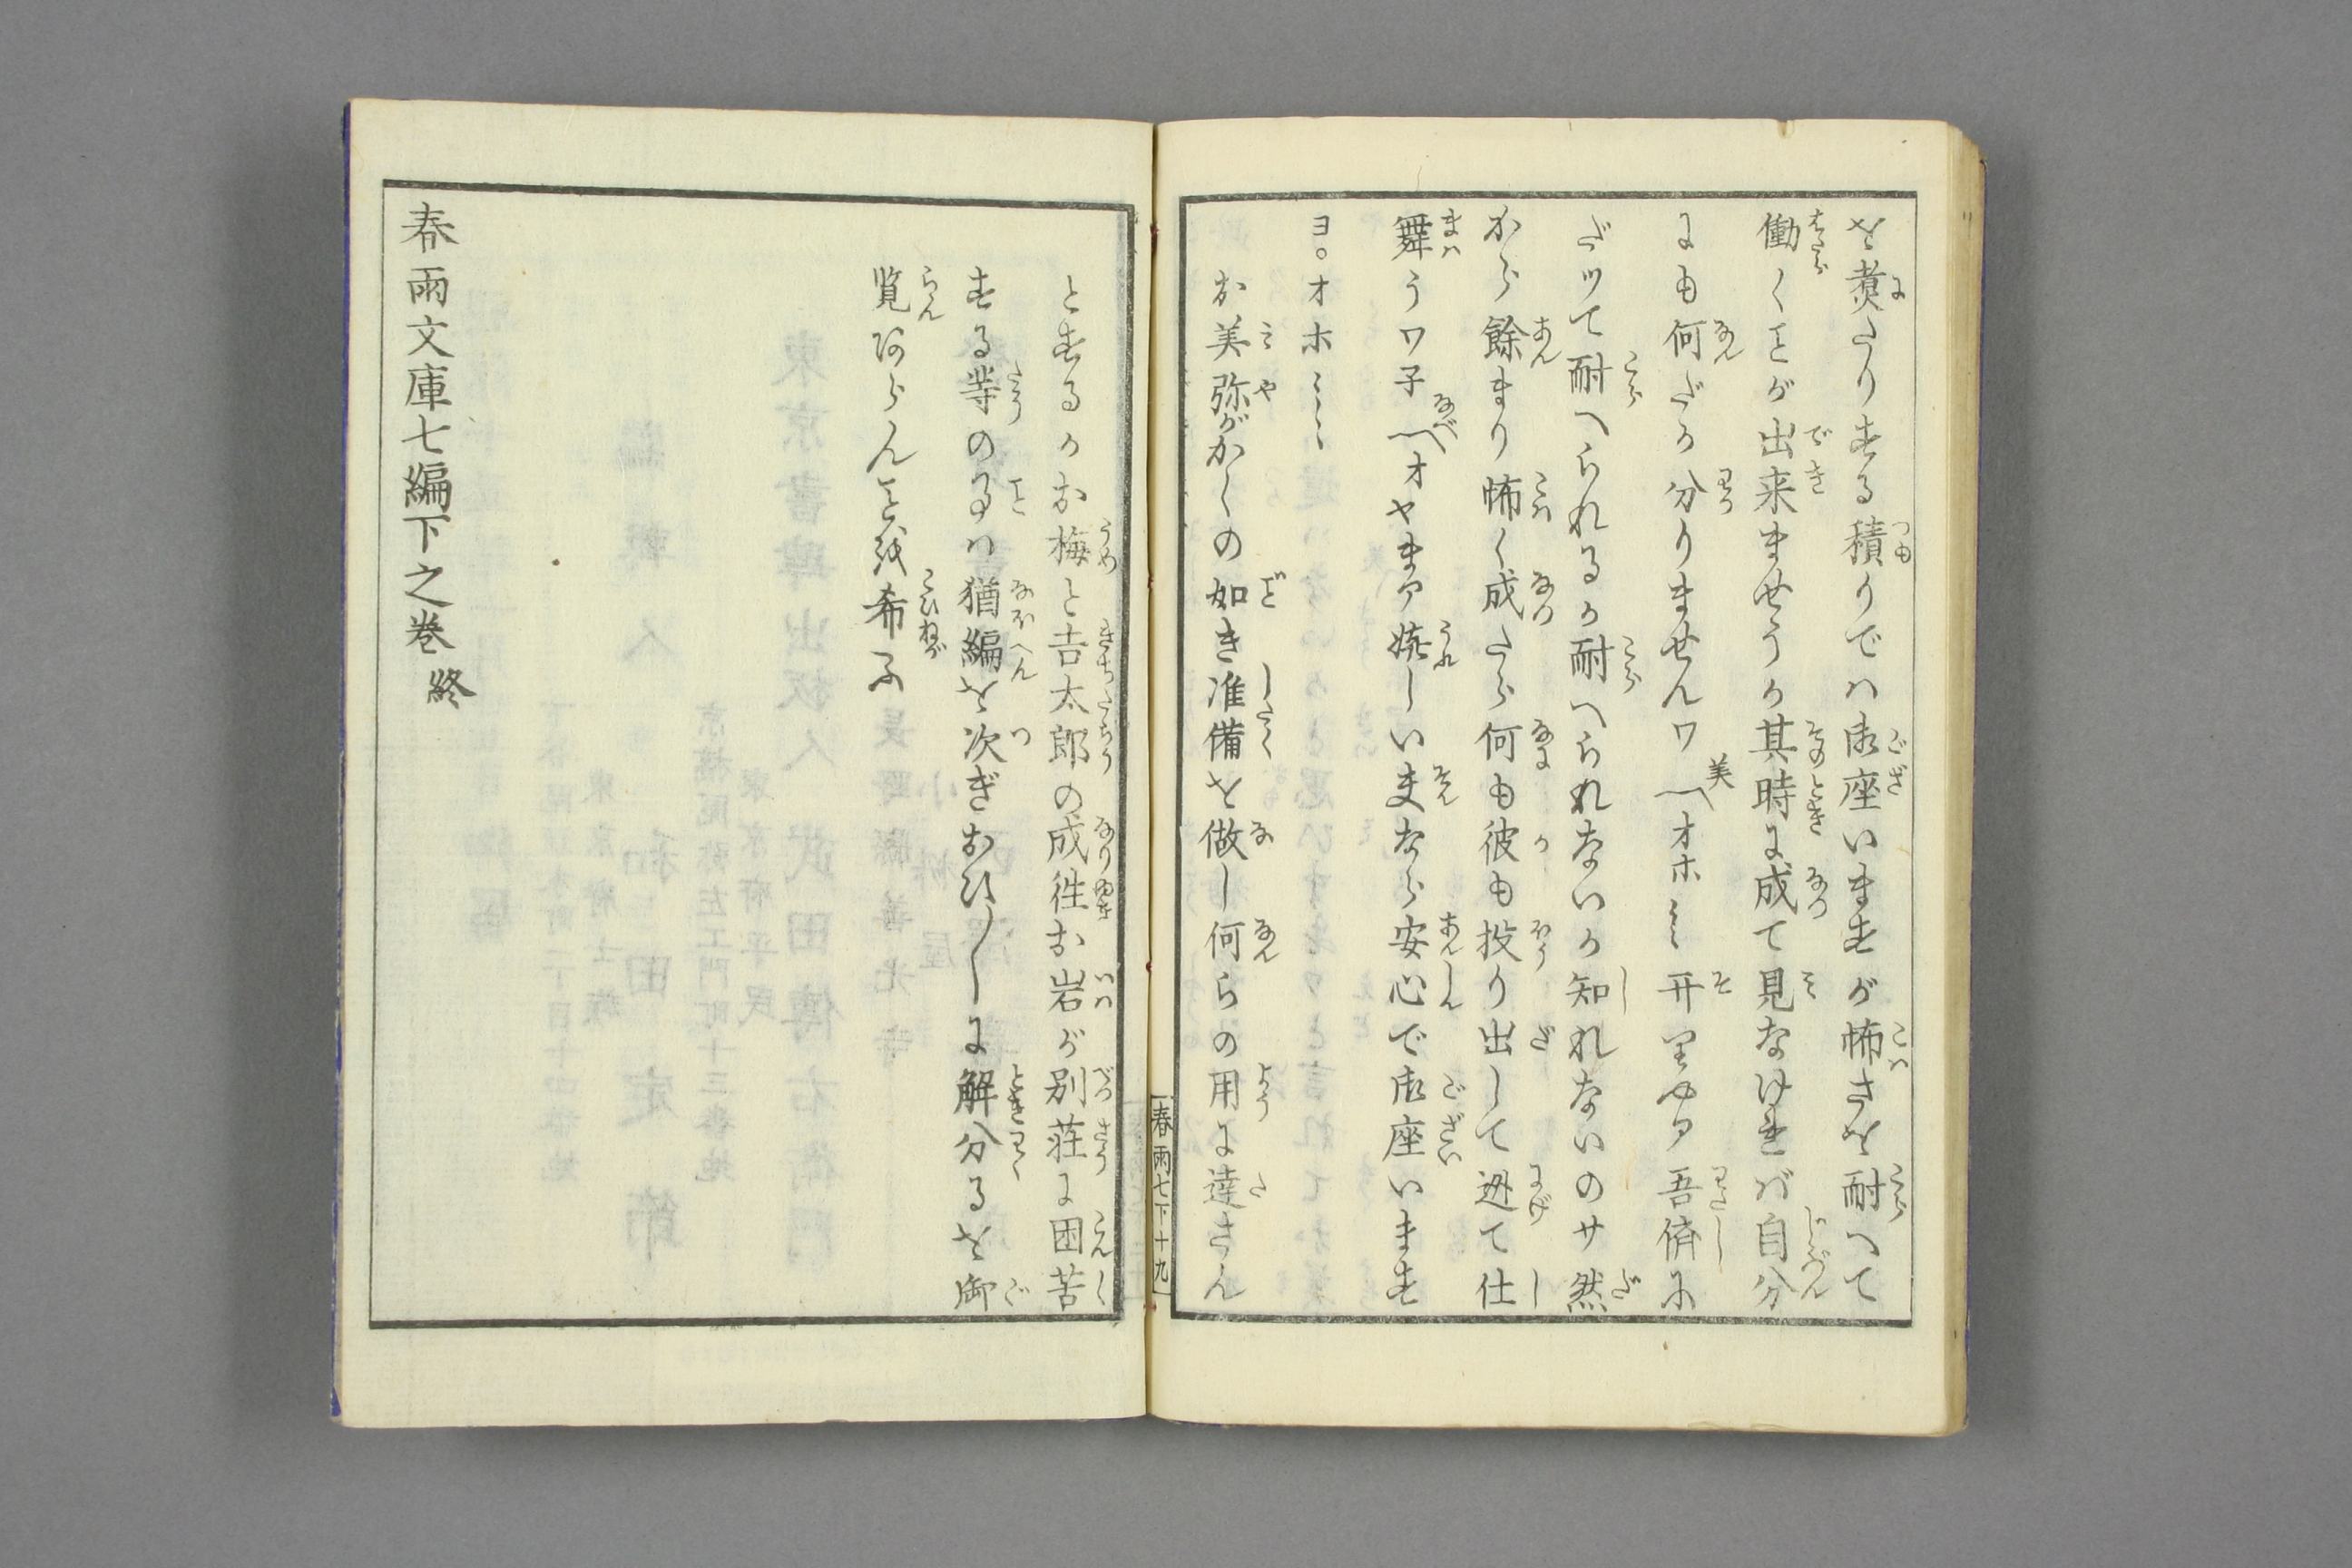 を煑たりする積りでハ御座いますが怖さを耐へて
働くヿが出来ませうか其時に成て見なければ自分
にも何だか分りませんワ 美へオホヽヽ 开りやア吾儕に
だツて耐へられるか耐へられないか知れないのサ然
から餘まり怖く成たら何も彼も投り出して迯て仕
舞うワ子 なべへオヤまア嬉しい夫なら安心で御座います
ヨ。オホヽヽヽ
お美弥がかくの如き准備を做し何らの用に達さん
とするかお梅と吉太郎の成徃お岩が別荘に困苦
する等の事ハ猶編を次ぎおひ〳〵に解分るを御
覧あらんヿを希ふ
春雨文庫七編下之巻 終
春雨七下 十九